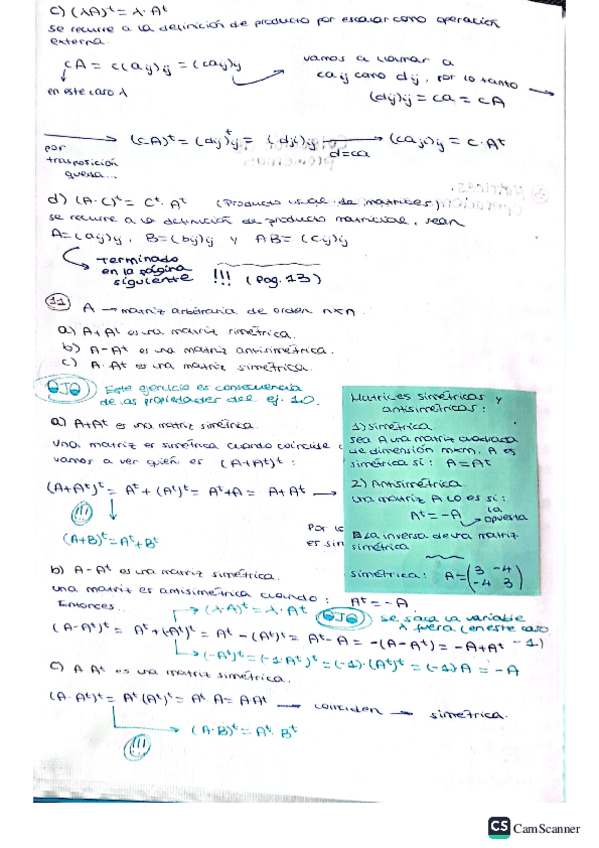 c) (λA)ᵗ = λ·Aᵗ
se recurre a la definición de producto por escalar como operación
externa.
cA = c(aij)ij = (caij)ij
en este caso λ
vamos a llamar a
caij como dij, por lo tanto
(dij)ij = ca = cA
por
trasposición
queda...
(cA)ᵗ = (dij)ᵗij = (dji)ij
d=ca
(caji)ij = c·Aᵗ
d) (A·C)ᵗ = Cᵗ·Aᵗ (Producto usual de matrices)
se recurre a la definición de producto matricial, sean
A=(aij)ij, B=(bij)ij y AB=(cij)ij
Terminado
en la página
siguiente !!! (Pag. 13)
11 A → matriz arbitraria de orden n×n.
a) A+Aᵗ es una matriz simétrica.
b) A-Aᵗ es una matriz antisimétrica.
c) A·Aᵗ es una matriz simétrica.
OJO Este ejercicio es consecuencia
de las propiedades del ej. 10.
a) A+Aᵗ es una matriz simétrica.
Una matriz es simétrica cuando coincide
vamos a ver quién es (A+Aᵗ)ᵗ:
(A+Aᵗ)ᵗ = Aᵗ+(Aᵗ)ᵗ = Aᵗ+A = A+Aᵗ →
!!!
(A+B)ᵗ=Aᵗ+Bᵗ
Por lo
es sim
Matrices simétricas y
antisimétricas:
1) Simétrica.
sea A una matriz cuadrada
de dimensión m×m. A es
simétrica si: A=Aᵗ
2) Antisimétrica
una matriz A lo es si:
Aᵗ = -A
la
opuesta
La inversa de una matriz
simétrica
simétrica: A=(3 -4
-4 3)
b) A-Aᵗ es una matriz simétrica.
una matriz es antisimétrica cuando: Aᵗ=-A
Entonces...
(λ·A)ᵗ=λ·Aᵗ
OJO se saca la variable
λ fuera (en este caso
-1)
(A-Aᵗ)ᵗ = Aᵗ+(-Aᵗ)ᵗ = Aᵗ-(Aᵗ)ᵗ = Aᵗ-A = -(A-Aᵗ) = -A+Aᵗ
(-Aᵗ)ᵗ=(-1Aᵗ)ᵗ=(-1)·(Aᵗ)ᵗ=(-1)A=-A
c) A·Aᵗ es una matriz simétrica.
(A·Aᵗ)ᵗ = Aᵗ(Aᵗ)ᵗ = Aᵗ·A = AAᵗ → coinciden → simétrica.
(A·B)ᵗ=Aᵗ·Bᵗ
!!!
CS CamScanner